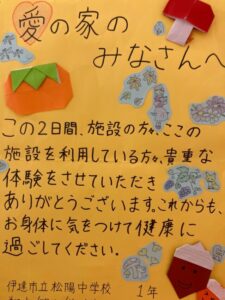 愛の家の
みなさんへ
この2日間、施設の方々、ここの
施設を利用している方々、貴重な
体験をさせていただき
ありがとうございます。これからも、
お身体に気をつけて健康に
過ごしてください。
伊達市立松陽中学校
1年